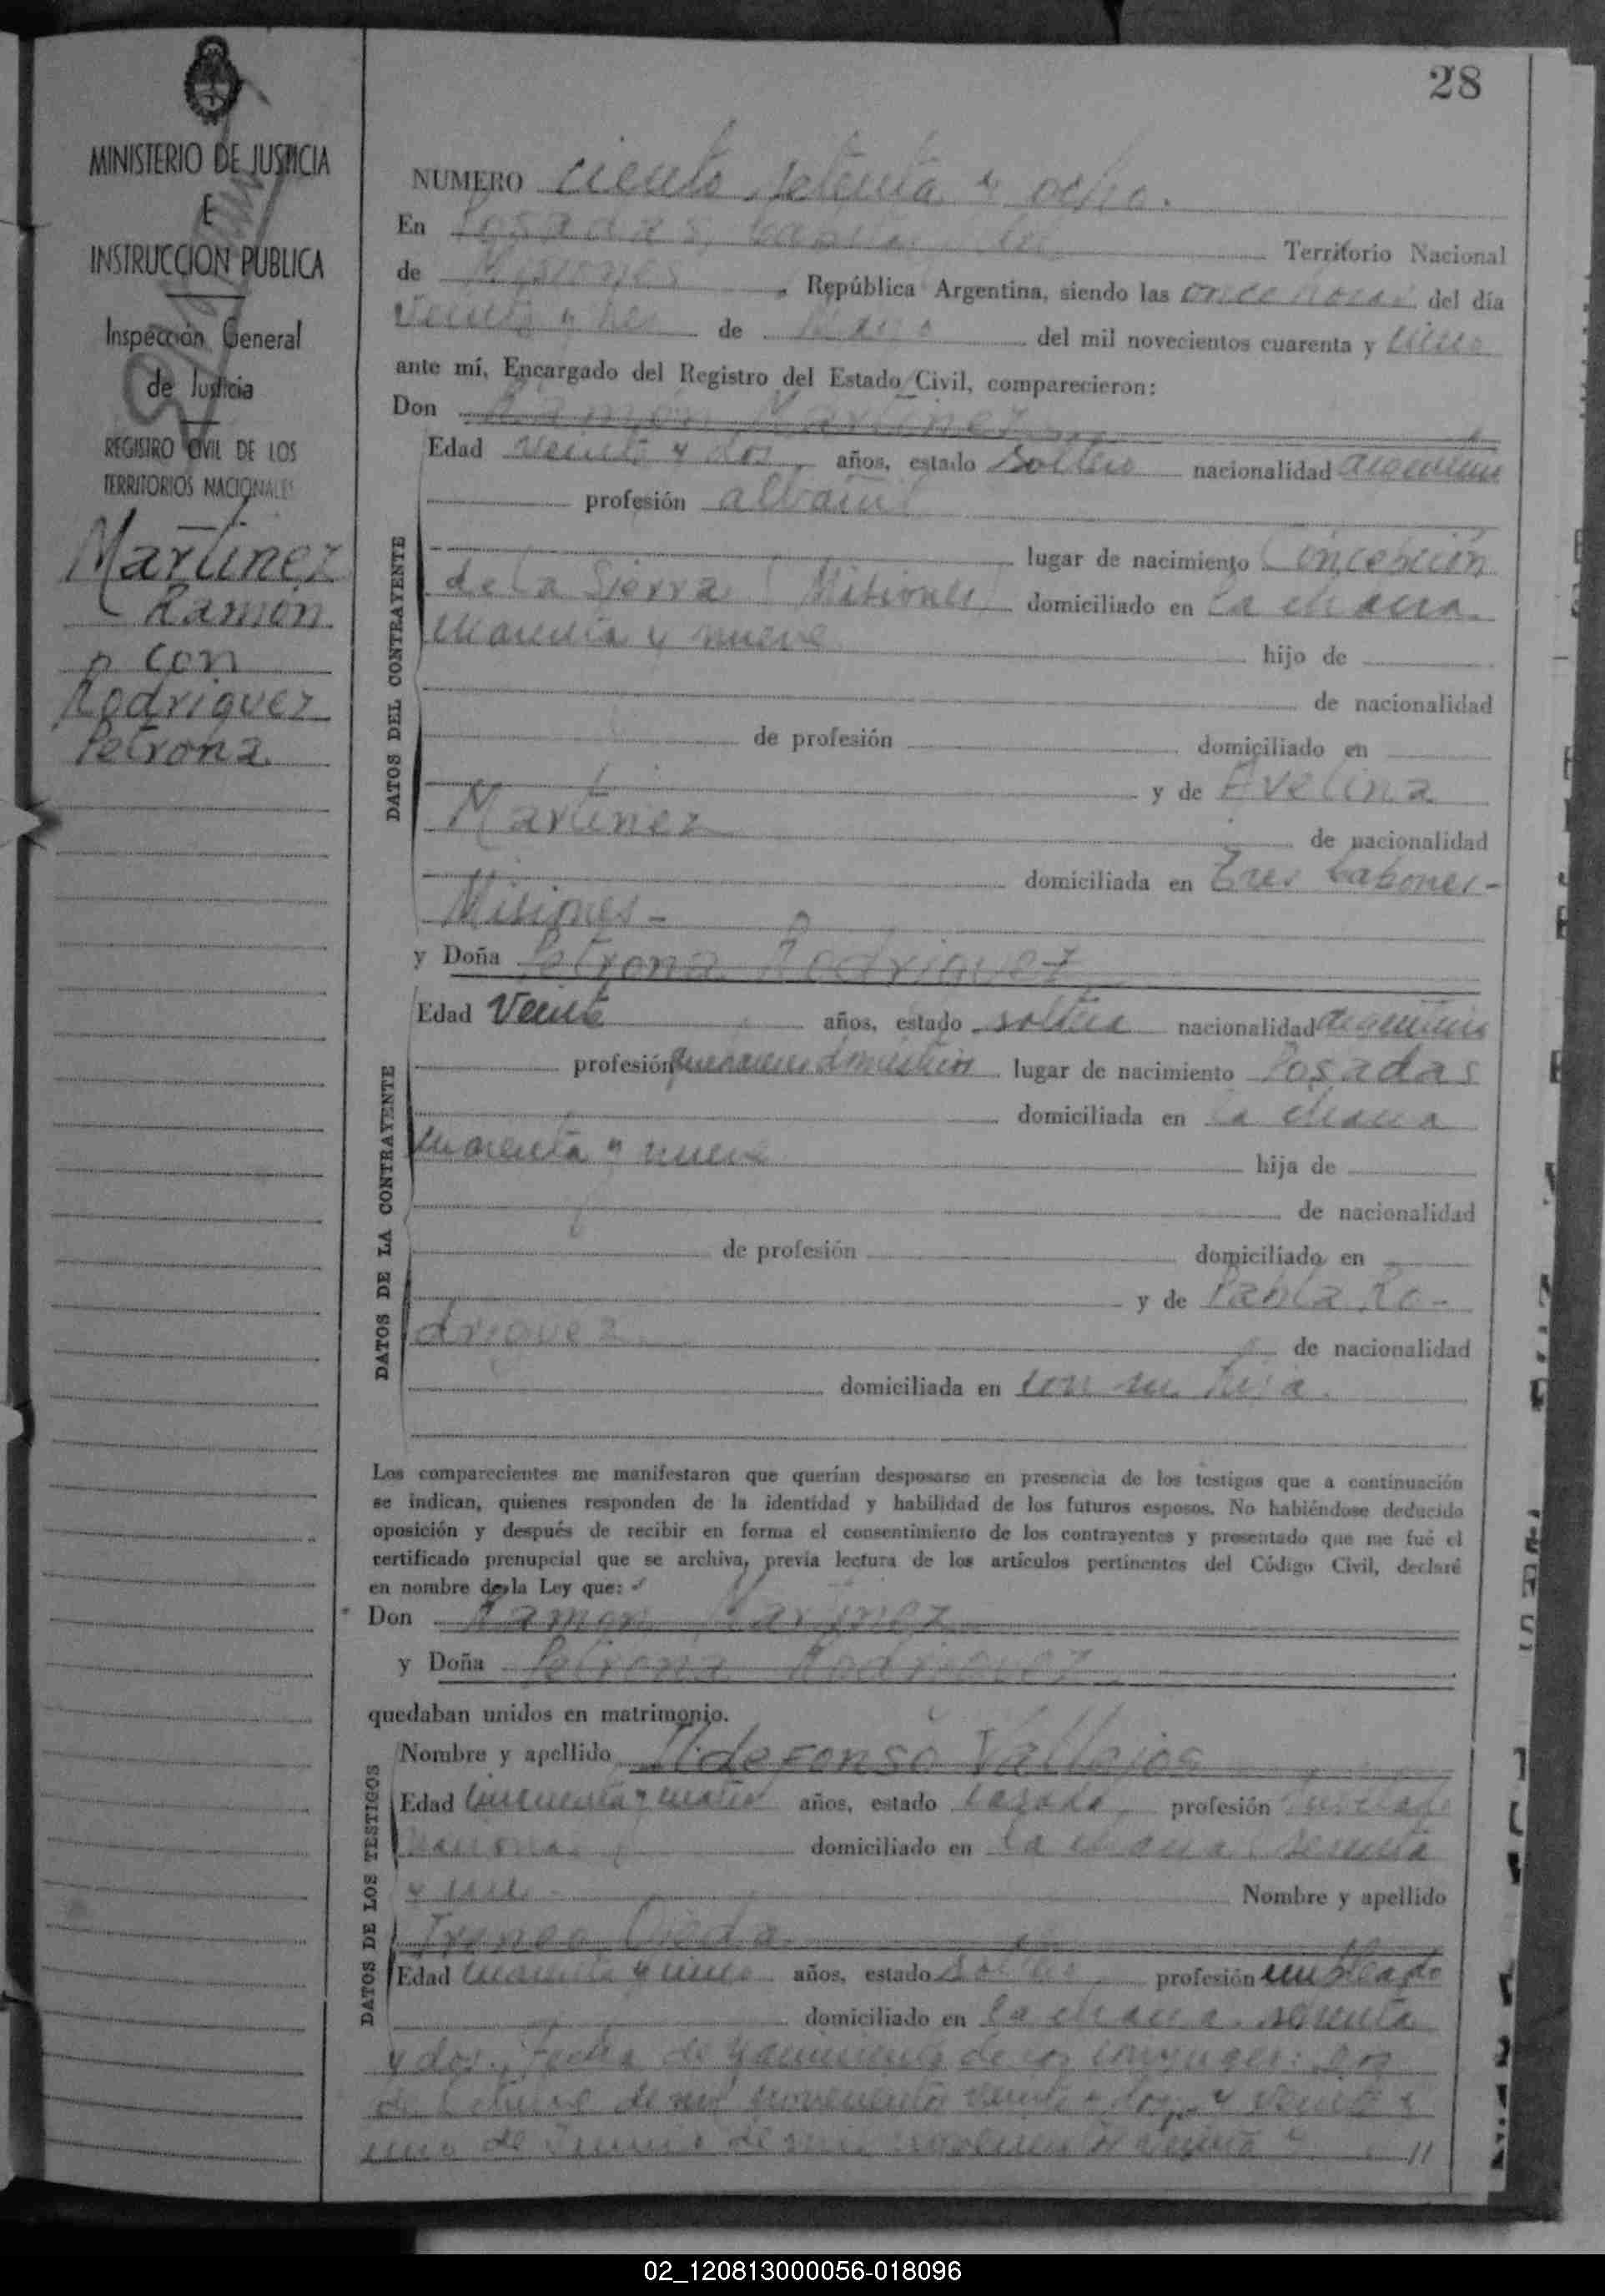 28
MINISTERIO DE JUSTICIA
E
INSTRUCCION PUBLICA
Inspección General
de Justicia
REGISTRO CIVIL DE LOS
TERRITORIOS NACIONALES
Martinez
Ramón
con
Rodriguez
Petrona
NUMERO ciento setenta y ocho.
En Posadas, capital del Territorio Nacional
de Misiones, República Argentina, siendo las once horas del día
veinte y tres de del mil novecientos cuarenta y cinco
ante mí, Encargado del Registro del Estado Civil, comparecieron:
Don Ramón Martinez
DATOS DEL CONTRAYENTE
Edad veinte y dos, años, estado soltero nacionalidad argentino
profesión albañil
lugar de nacimiento Concepción
de la Sierra (Misiones) domiciliado en la chacra
cuarenta y nueve hijo de
de nacionalidad
de profesión domiciliado en
y de Avelina
Martinez de nacionalidad
domiciliada en Tres Capones-
Misiones-
y Doña Petrona Rodriguez
DATOS DE LA CONTRAYENTE
Edad veinte años, estado soltera nacionalidad argentina
profesión quehaceres domésticos lugar de nacimiento Posadas
domiciliada en la chacra
cuarenta y nueve hija de
de nacionalidad
de profesión domiciliado en
y de Pabla Ro-
driguez de nacionalidad
domiciliada en con su hija.
Los comparecientes me manifestaron que querían desposarse en presencia de los testigos que a continuación
se indican, quienes responden de la identidad y habilidad de los futuros esposos. No habiéndose deducido
oposición y después de recibir en forma el consentimiento de los contrayentes y presentado que me fué el
certificado prenupcial que se archiva, previa lectura de los artículos pertinentes del Código Civil, declaré
en nombre de la Ley que:
Don Ramon Martinez
y Doña Petrona Rodriguez
quedaban unidos en matrimonio.
DATOS DE LOS TESTIGOS
Nombre y apellido Ildefonso Vallejos
Edad cincuenta y cuatro años, estado casado, profesión jubilado
nacional domiciliado en la chacra sesenta
y Nombre y apellido
Ireneo Ojeda
Edad cuarenta y cinco años, estado soltero, profesión empleado
domiciliado en la chacra sesenta
y dos. Fecha de nacimiento de los conyuges: dos
de Octubre de mil novecientos veinte y dos, y veinte y
uno de de mil novecientos veinte y //
02_120813000056-018096